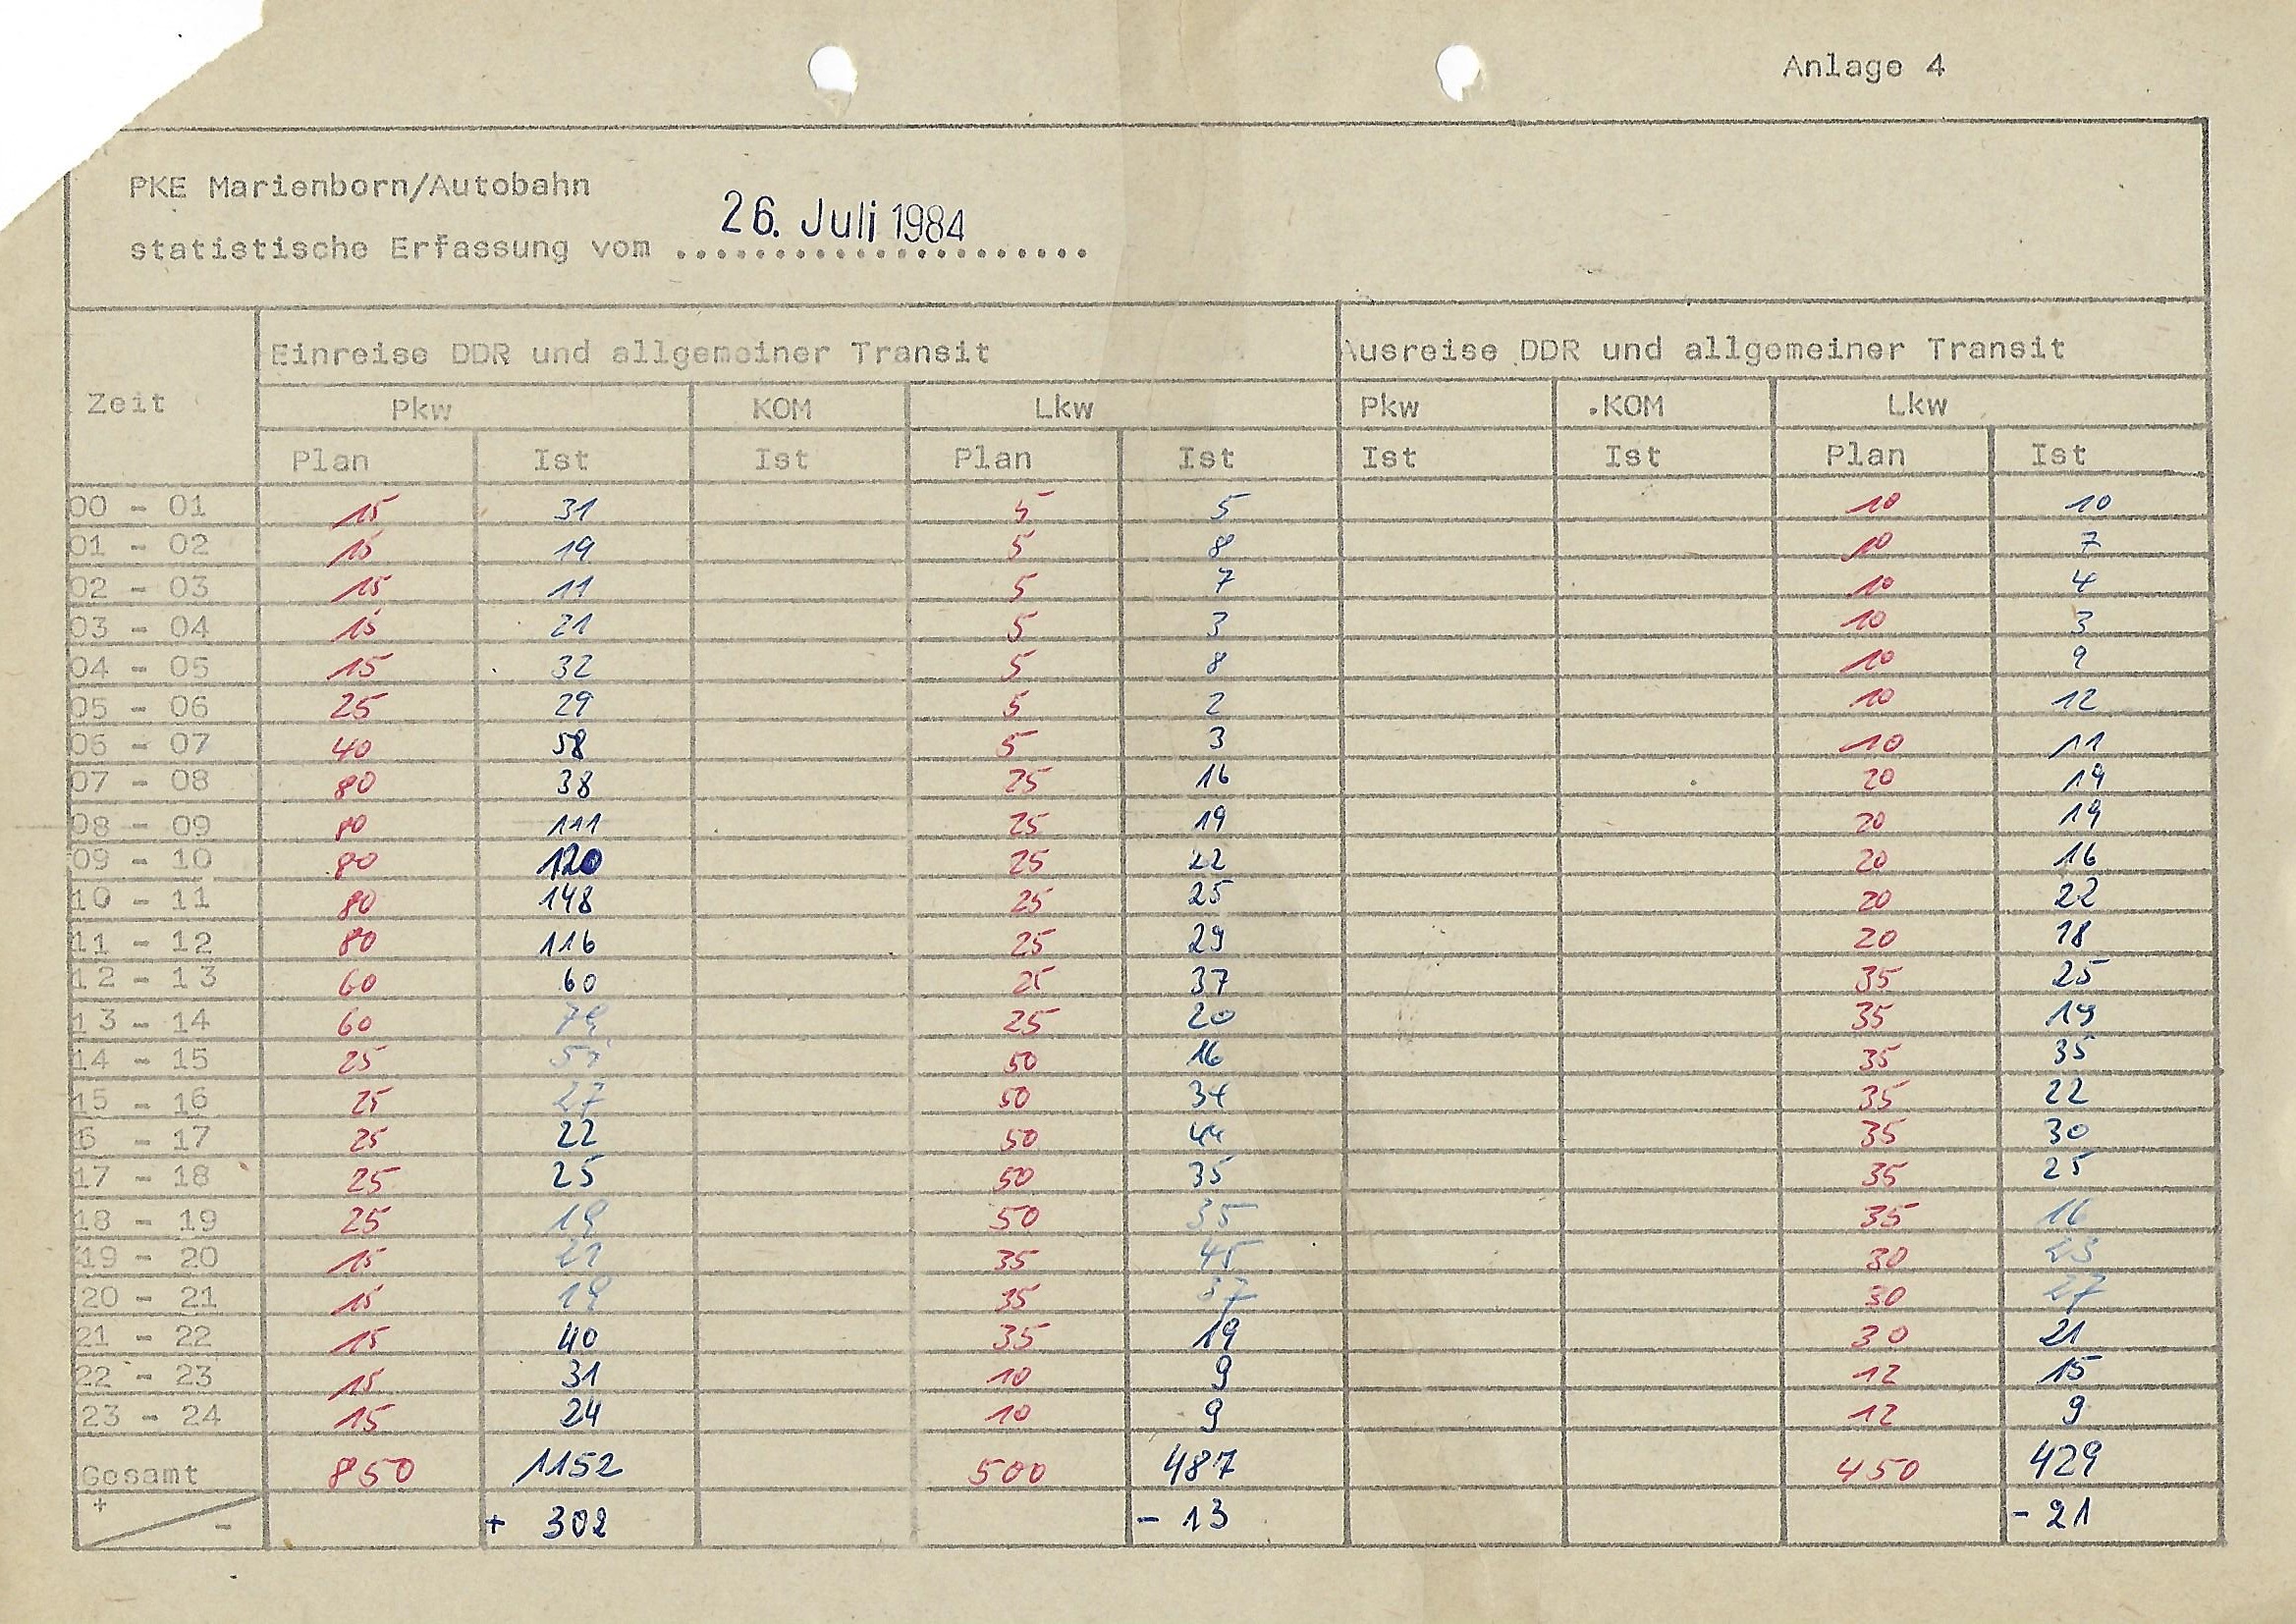 Anlage 4
PKE Marienborn/Autobahn
statistische Erfassung vom 26. Juli 1984
Zeit Einreise DDR und allgemeiner Transit Ausreise DDR und allgemeiner Transit
Pkw KOM Lkw Pkw KOM Lkw
Plan Ist Ist Plan Ist Ist Ist Plan Ist
00 - 01 15 31 5 5 10 10
01 - 02 15 19 5 8 10 7
02 - 03 15 11 5 7 10 4
03 - 04 15 21 5 3 10 3
04 - 05 15 32 5 8 10 9
05 - 06 25 29 5 2 10 12
06 - 07 40 58 5 3 10 11
07 - 08 80 38 25 16 20 19
08 - 09 80 111 25 19 20 19
09 - 10 80 120 25 22 20 16
10 - 11 80 148 25 25 20 22
11 - 12 80 116 25 29 20 18
12 - 13 60 60 25 37 35 25
13 - 14 60 25 20 35 19
14 - 15 25 50 16 35 35
15 - 16 25 27 50 34 35 22
6 - 17 25 22 50 44 35 30
17 - 18 25 25 50 35 35 25
18 - 19 25 19 50 35 35 16
19 - 20 15 35 45 30 23
20 - 21 15 19 35 37 30 27
21 - 22 15 40 35 19 30 21
22 - 23 15 31 10 9 12 15
23 - 24 15 24 10 9 12 9
Gesamt 850 1152 500 487 450 429
+ - + 302 - 13 - 21